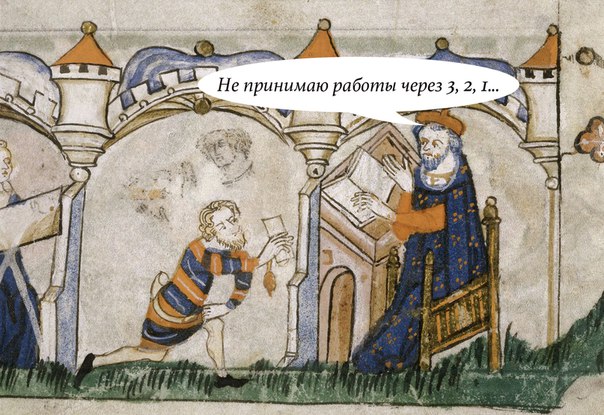 Не принимаю работы через 3, 2, 1...